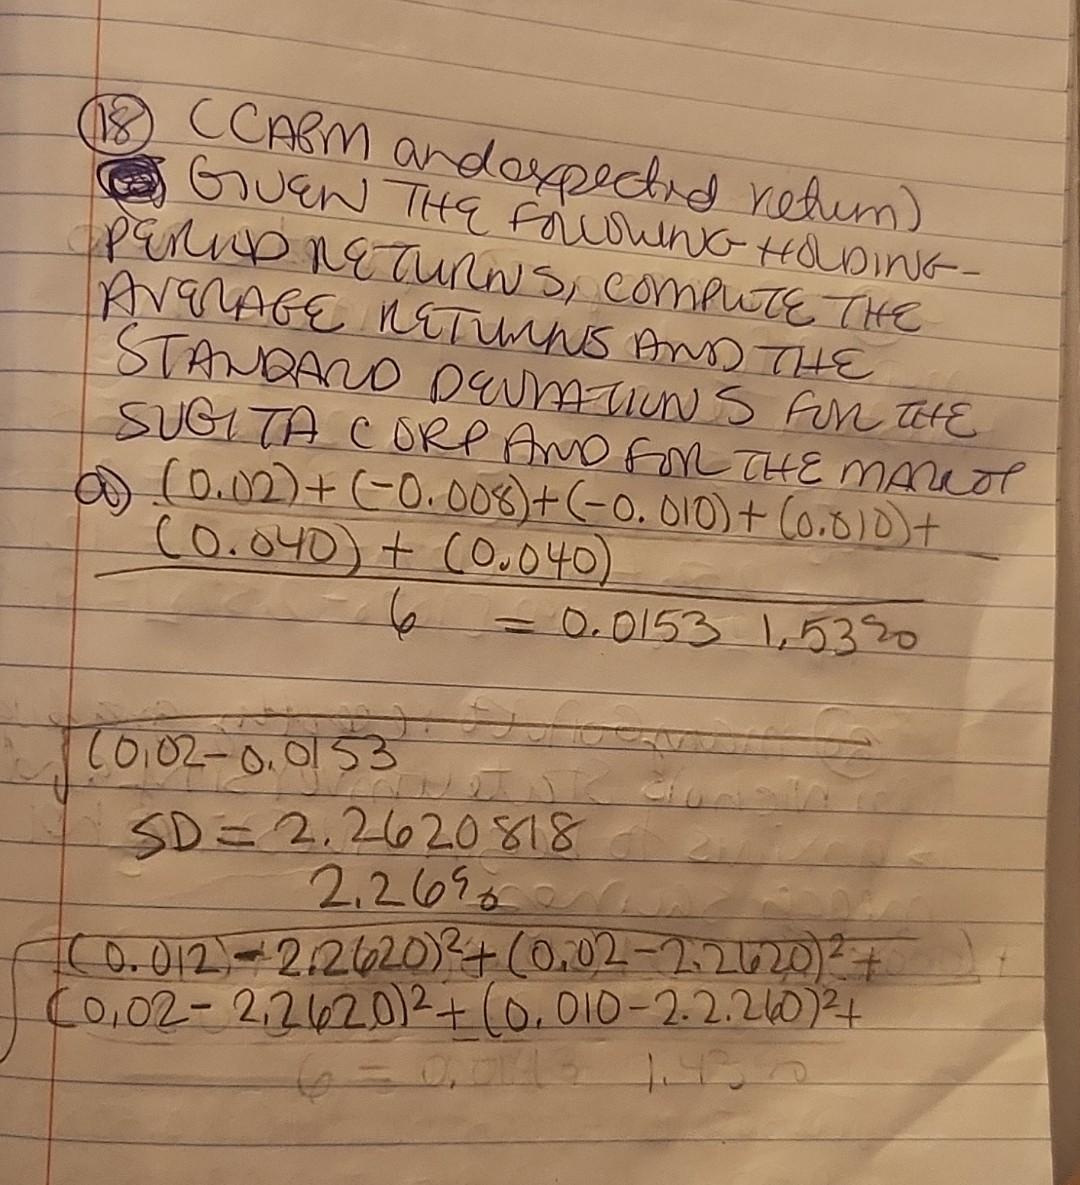 18 (CAPM and expected return)
GIVEN THE FOLLOWING HOLDING-
PERIOD RETURNS, COMPUTE THE
AVERAGE RETURNS AND THE
STANDARD DEVIATIONS FOR THE
SUGITA CORP AND FOR THE MARKET
a) (0.02)+(-0.008)+(-0.010)+(0.010)+
(0.040) + (0.040)
6 = 0.0153 1.53%
√(0.02-0.0153
SD = 2.2620818
2.26%
√(0.012)-2.2620)²+(0.02-2.2620)²+
(0.02-2.2620)²+(0.010-2.2.260)²+